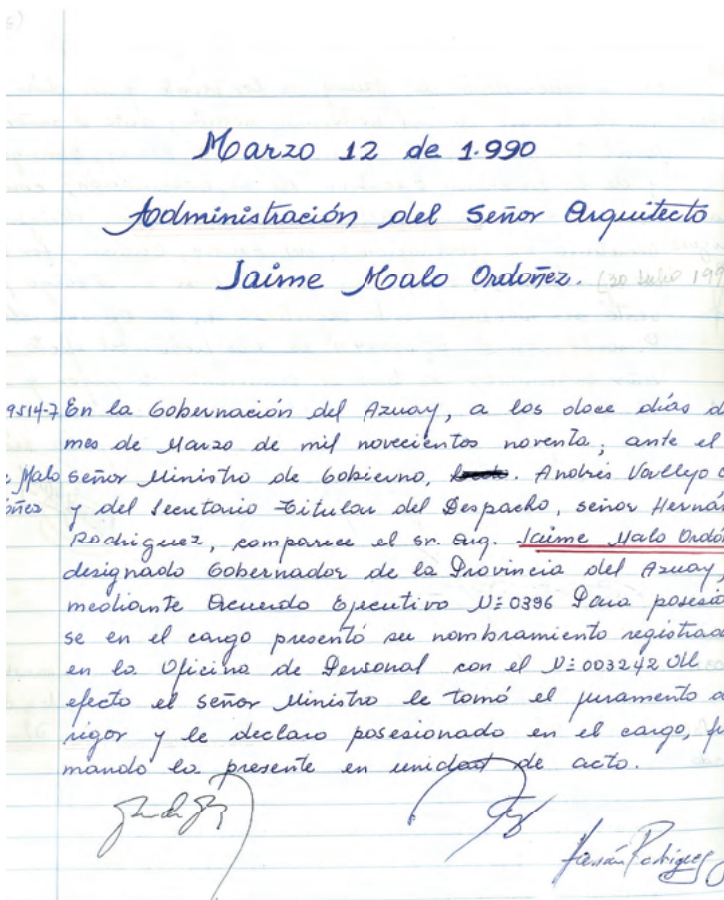 Marzo 12 de 1.990
Administración del Señor Arquitecto
Jaime Malo Ordoñez. (30 Julio 199
9514-7 En la Gobernación del Azuay, a los doce días d
mes de Marzo de mil novecientos noventa; ante el
Malo señor Ministro de Gobierno, Andrés Vallejo
oñez y del Secretario Titular del Despacho, señor Hernán
Rodriguez, comparece el sr. Arq. Jaime Malo Ordóñ
designado Gobernador de la Provincia del Azuay,
mediante Acuerdo Ejecutivo N: 0396 Para posesio
se en el cargo presentó su nombramiento registrad
en la Oficina de Personal con el N: 003242 Al
efecto el señor Ministro le tomó el juramento d
rigor y le declaro posesionado en el cargo, fir
mando la presente en unidad de acto.
Hernán Rodriguez